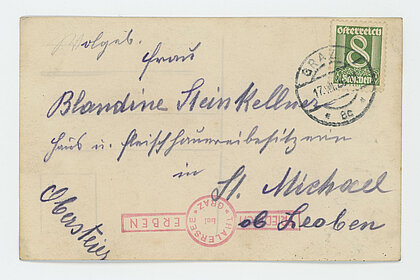 Wolgeb.
Frau
Blandine Steinkellner
Haus u. Fleischhauereibesitzerin
in
St. Michael
ob Leoben
Obersteier
österreich
8
Groschen
GRAZ
17.VII.
* 8c *
THALERSEE
bei
GRAZ
ERBEN